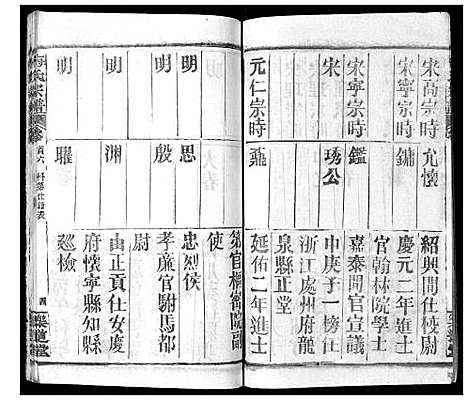 宋高宗時 允懷 紹興間仕校尉
宋寧宗時 鏞 慶元二年進士
官翰林院學士
宋寧宗時 鑑 嘉泰間官宣議
宋 琇公 申庚于一榜仕
浙江處州府龍
泉縣正堂
元仁宗時 鼐 延佑二年進士
官樞密院副
使
明 思 忠烈侯
明 殷 孝廉官駙馬都
尉
明 渊 由正貢仕安慶
府懷寧縣知縣
明 曜 廵檢
氏宗譜 首六 科第仕籍表 四 樂道堂